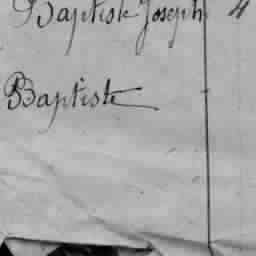 Baptiste Joseph 4
Baptiste